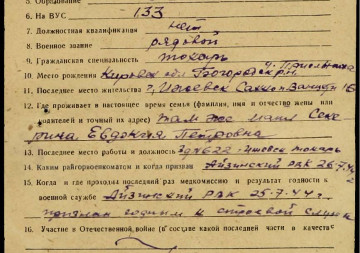 5. Образование
6. На ВУС 133
7. Должностная квалификация нет
8. Военное звание рядовой
9. Гражданская специальность токарь
10. Место рождения Кировск. обл.
11. Последнее место жительства г. Ижевск
12. Где проживает в настоящее время семья (фамилия, имя и отчество жены или
родителей и точный их адрес) Там же
Евдокия Петровна
13. Последнее место работы и должность токарь
14. Каким райгорвоенкоматом и когда призван РВК 26.7.44
15. Когда и где проходил последний раз медкомиссию и результат годности к
военной службе РВК 25.7.44
признан годным к строевой службе
16. Участие в Отечественной войне (в составе какой последней части и качестве